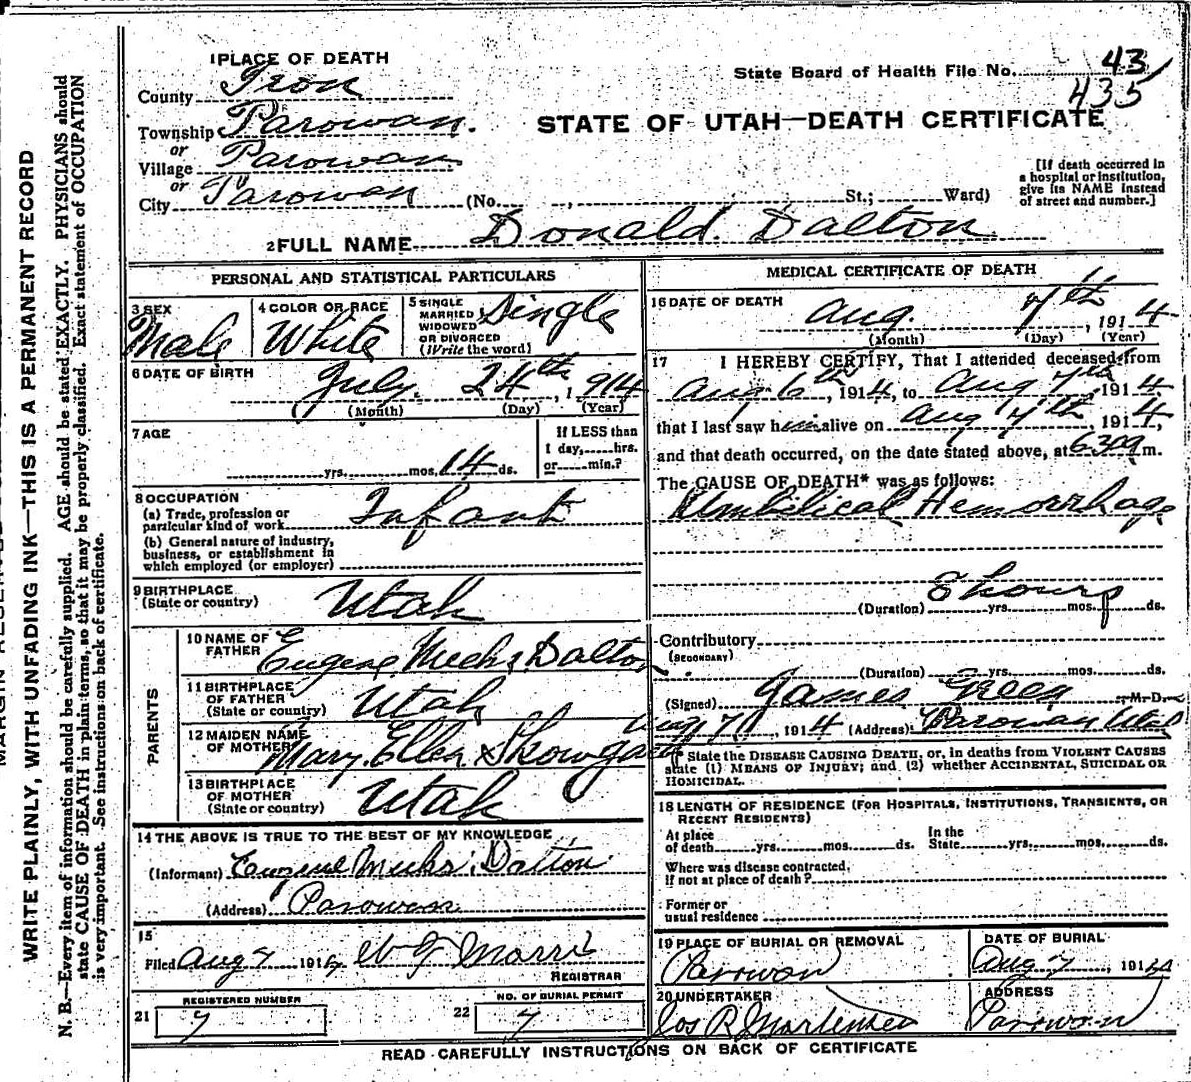 1 PLACE OF DEATH
County Iron
State Board of Health File No. 43
435
Township Parowan.
or
Village Parowan
or
City Parowan (No. , St.; Ward)
STATE OF UTAH—DEATH CERTIFICATE
[If death occurred in
a hospital or institution,
give its NAME instead
of street and number.]
2 FULL NAME Donald Dalton
PERSONAL AND STATISTICAL PARTICULARS
3 SEX
Male
4 COLOR OR RACE
White
5 SINGLE
MARRIED
WIDOWED
OR DIVORCED
(Write the word)
Single
6 DATE OF BIRTH
July. 24th, 1914
(Month) (Day) (Year)
7 AGE
yrs. mos. 14 ds.
If LESS than
1 day, hrs.
or min.?
8 OCCUPATION
(a) Trade, profession or
particular kind of work Infant
(b) General nature of industry,
business, or establishment in
which employed (or employer)
9 BIRTHPLACE
(State or country) Utah
PARENTS
10 NAME OF
FATHER Eugene Meeks Dalton
11 BIRTHPLACE
OF FATHER
(State or country) Utah
12 MAIDEN NAME
OF MOTHER Mary Ellen
13 BIRTHPLACE
OF MOTHER
(State or country) Utah
14 THE ABOVE IS TRUE TO THE BEST OF MY KNOWLEDGE
(Informant) Eugene Meeks Dalton
(Address) Parowan
15
Filed Aug 7 1914 REGISTRAR
REGISTERED NUMBER
21 7
NO. OF BURIAL PERMIT
22 7
MEDICAL CERTIFICATE OF DEATH
16 DATE OF DEATH
Aug. 7th, 1914
(Month) (Day) (Year)
17 I HEREBY CERTIFY, That I attended deceased from
Aug 6th, 1914, to Aug 7th 1914
that I last saw him alive on Aug 7th, 1914,
and that death occurred, on the date stated above, at m.
The CAUSE OF DEATH* was as follows:
Umbilical Hemorrhage
8 hours
(Duration) yrs. mos. ds.
Contributory
(SECONDARY)
(Duration) yrs. mos. ds.
(Signed) James Green M.D.
Aug 7, 1914 (Address) Parowan Utah
* State the DISEASE CAUSING DEATH, or, in deaths from VIOLENT CAUSES
state (1) MEANS OF INJURY; and (2) whether ACCIDENTAL, SUICIDAL OR
HOMICIDAL.
18 LENGTH OF RESIDENCE (FOR HOSPITALS, INSTITUTIONS, TRANSIENTS, OR
RECENT RESIDENTS)
At place
of death yrs. mos. ds.
In the
State yrs. mos. ds.
Where was disease contracted,
if not at place of death?
Former or
usual residence
19 PLACE OF BURIAL OR REMOVAL
Parowan
DATE OF BURIAL
Aug 7, 1914
20 UNDERTAKER
Jos R Mortensen
ADDRESS
Parowan
READ CAREFULLY INSTRUCTIONS ON BACK OF CERTIFICATE
WRITE PLAINLY, WITH UNFADING INK—THIS IS A PERMANENT RECORD
N. B.—Every item of information should be carefully supplied. AGE should be stated EXACTLY. PHYSICIANS should
state CAUSE OF DEATH in plain terms, so that it may be properly classified. Exact statement of OCCUPATION
is very important. See instructions on back of certificate.